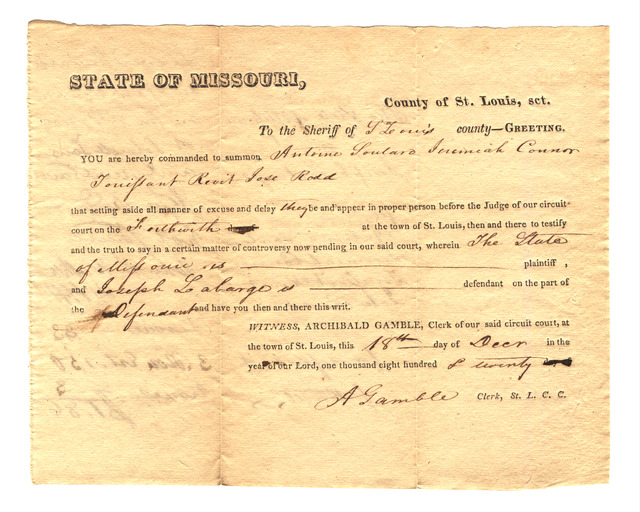 STATE OF MISSOURI,
County of St. Louis, sct.
To the Sheriff of St Louis county—GREETING.
YOU are hereby commanded to summon Antoine Soulard Jeremiah Connor
Jose
that setting aside all manner of excuse and delay they be and appear in proper person before the Judge of our circuit
court on the Forthwith at the town of St. Louis, then and there to testify
and the truth to say in a certain matter of controversy now pending in our said court, wherein The State
of Missouri is plaintiff,
and Joseph Labarge is defendant on the part of
the Defendant and have you then and there this writ.
WITNESS, ARCHIBALD GAMBLE, Clerk of our said circuit court, at
the town of St. Louis, this 18th day of Decr in the
year of our Lord, one thousand eight hundred & twenty
A Gamble Clerk, St. L. C. C.